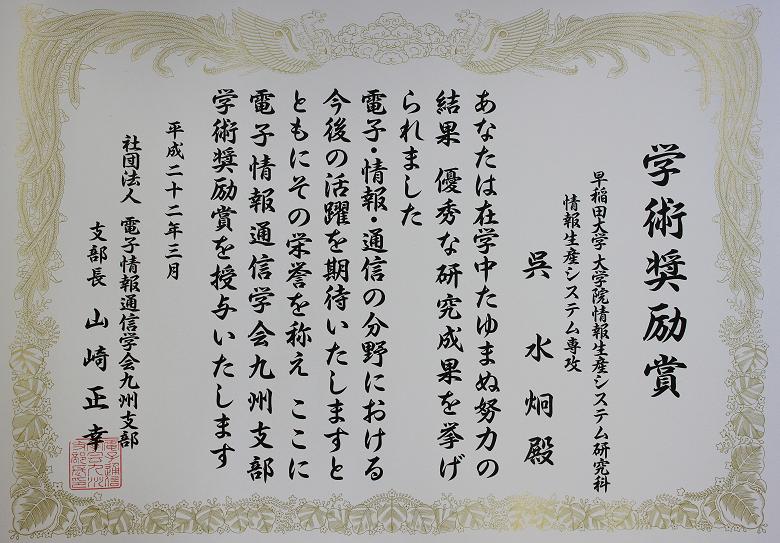 学術奨励賞
早稲田大学 大学院情報生産システム研究科
情報生産システム専攻
呉 水炯 殿
あなたは在学中たゆまぬ努力の
結果 優秀な研究成果を挙げ
られました
電子・情報・通信の分野における
今後の活躍を期待いたしますと
ともにその栄誉を称え ここに
電子情報通信学会九州支部
学術奨励賞を授与いたします
平成二十二年三月
社団法人 電子情報通信学会九州支部
支部長 山崎正幸